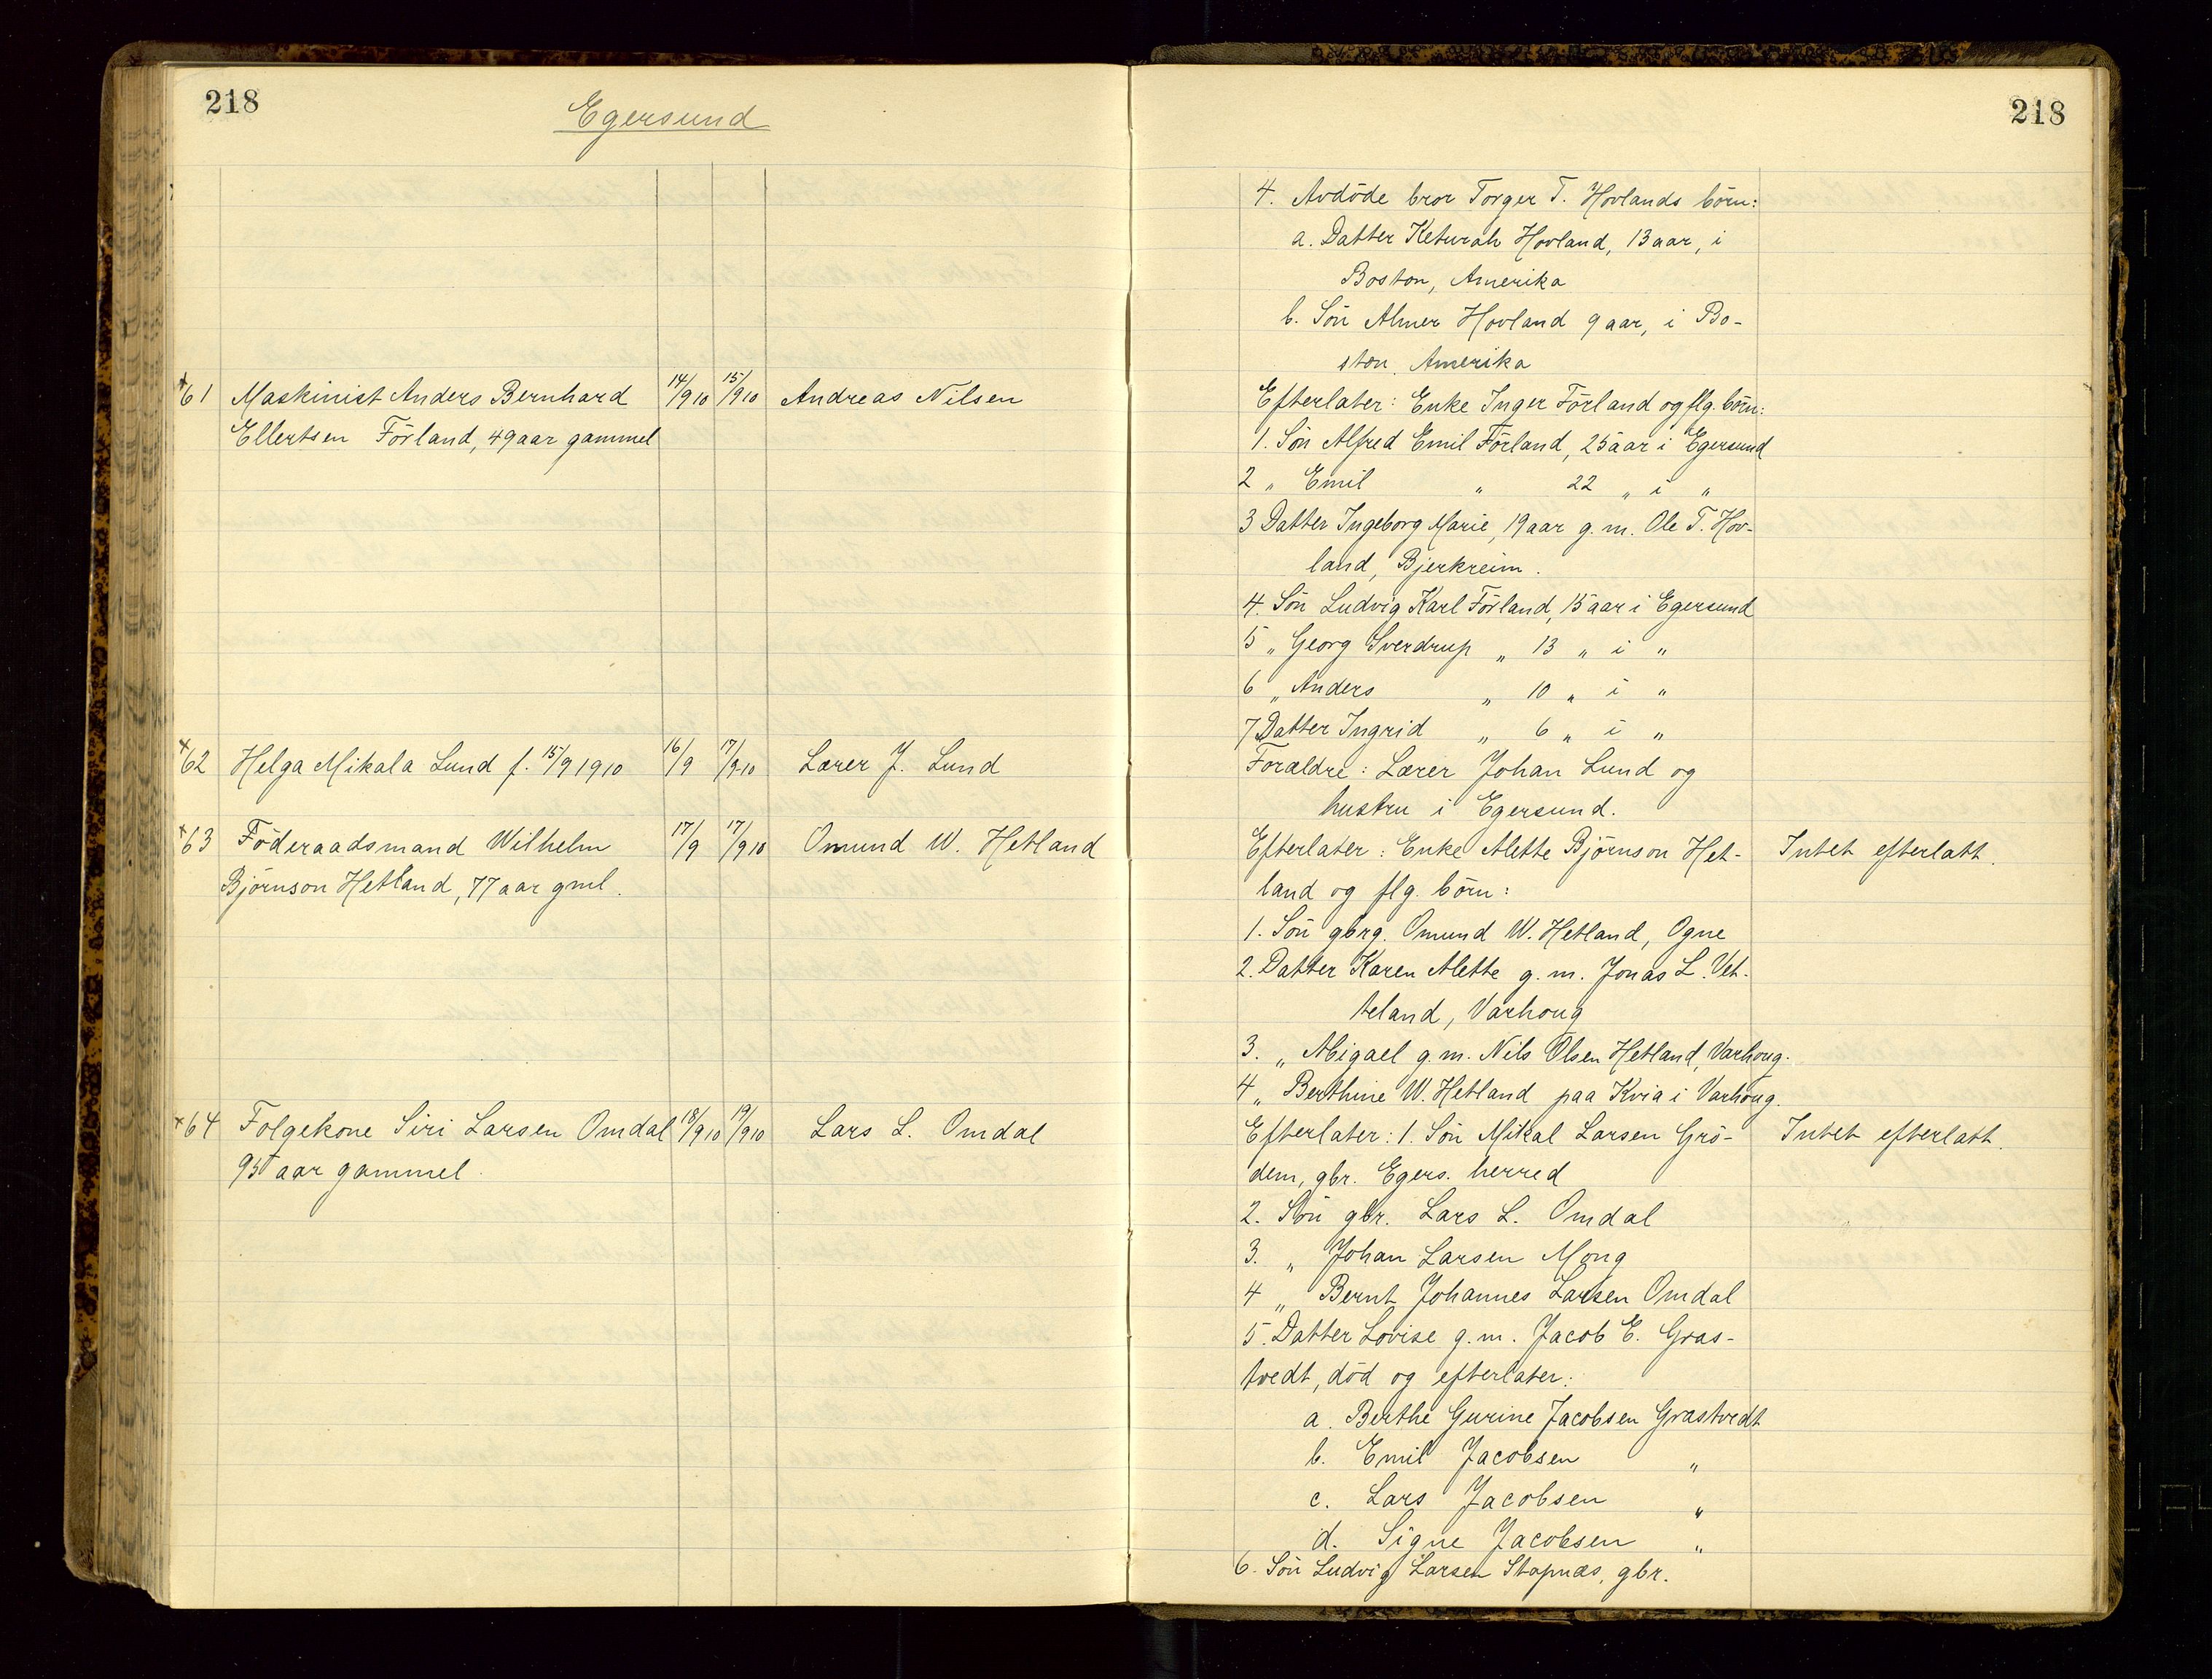 218
Egersund
+61 Maskinist Anders Bernhard 14/9 10 15/9 10 Andreas Nilsen
Ellertsen Förland, 49 aar gammel
+62 Helga Mikala Lund f. 15/9 1910 16/9 17/9 10 Lærer J. Lund
+63 Föderaadsmand Wilhelm 17/9 17/9 10 Omund W. Hetland
Björnson Hetland, 77 aar gml.
+64 Folgekone Siri Larsen Omdal 18/9 10 19/9 10 Lars L. Omdal
95 aar gammel.
218
4. Avdöde bror Torger T. Hovlands börn:
a. Datter Keturah Hovland, 13 aar, i
Boston, Amerika
b. Sön Almer Hovland 9 aar, i Bo-
ston, Amerika
Efterlater: Enke Inger Förland og flg. börn:
1. Sön Alfred Emil Förland, 25 aar i Egersund
2 " Emil " 22 " i "
3 Datter Ingeborg Marie, 19 aar g.m. Ole T. Hov-
land, Bjerkreim.
4. Sön Ludvig Karl Förland, 15 aar i Egersund
5 " Georg Sverdrup " 13 " i "
6 " Anders " 10 " i "
7 Datter Ingrid " 6 " i "
Forældre: Lærer Johan Lund og
hustru i Egersund.
Efterlater: Enke Alette Björnson Het- Intet efterlatt.
land og flg. börn:
1. Sön gbrg. Omund W. Hetland, Ogne
2. Datter Karen Alette g.m. Jonas L. Vet-
teland, Varhoug
3. " Abigael g.m. Nils Olsen Hetland, Varhoug.
4 " Berthine W. Hetland paa Kvia i Varhoug.
Efterlater: 1. Sön Mikal Larsen Grö- Intet efterlatt.
dem, gbr. Egers. herred
2. Sön gbr. Lars L. Omdal
3. " Johan Larsen Mong
4 " Bernt Johannes Larsen Omdal
5. Datter Lovise g.m. Jacob E. Gras-
tvedt, död og efterlater:
a. Berthe Gurine Jacobsen Grastvedt
b. Emil Jacobsen "
c. Lars Jacobsen "
d. Signe Jacobsen "
6. Sön Ludvig Larsen Stapnæs, gbr.